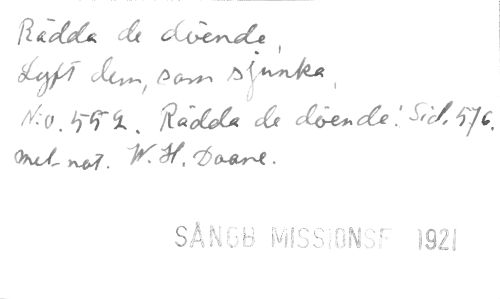 Rädda de döende,
Lyft dem, som sjunka,
N:o. 552. Rädda de döende! Sid. 516.
mel. not. W. H. Doane.
SÅNGB MISSIONSF 1921